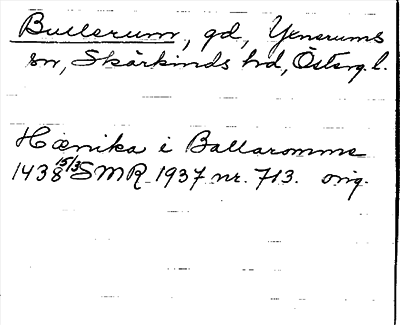 Bullerum, gd, Yxnerums
sn, Skärkinds hd, Österg. l.
Hænika i Ballaromme
1438 15/3 SMR 1937 nr. 713. orig.